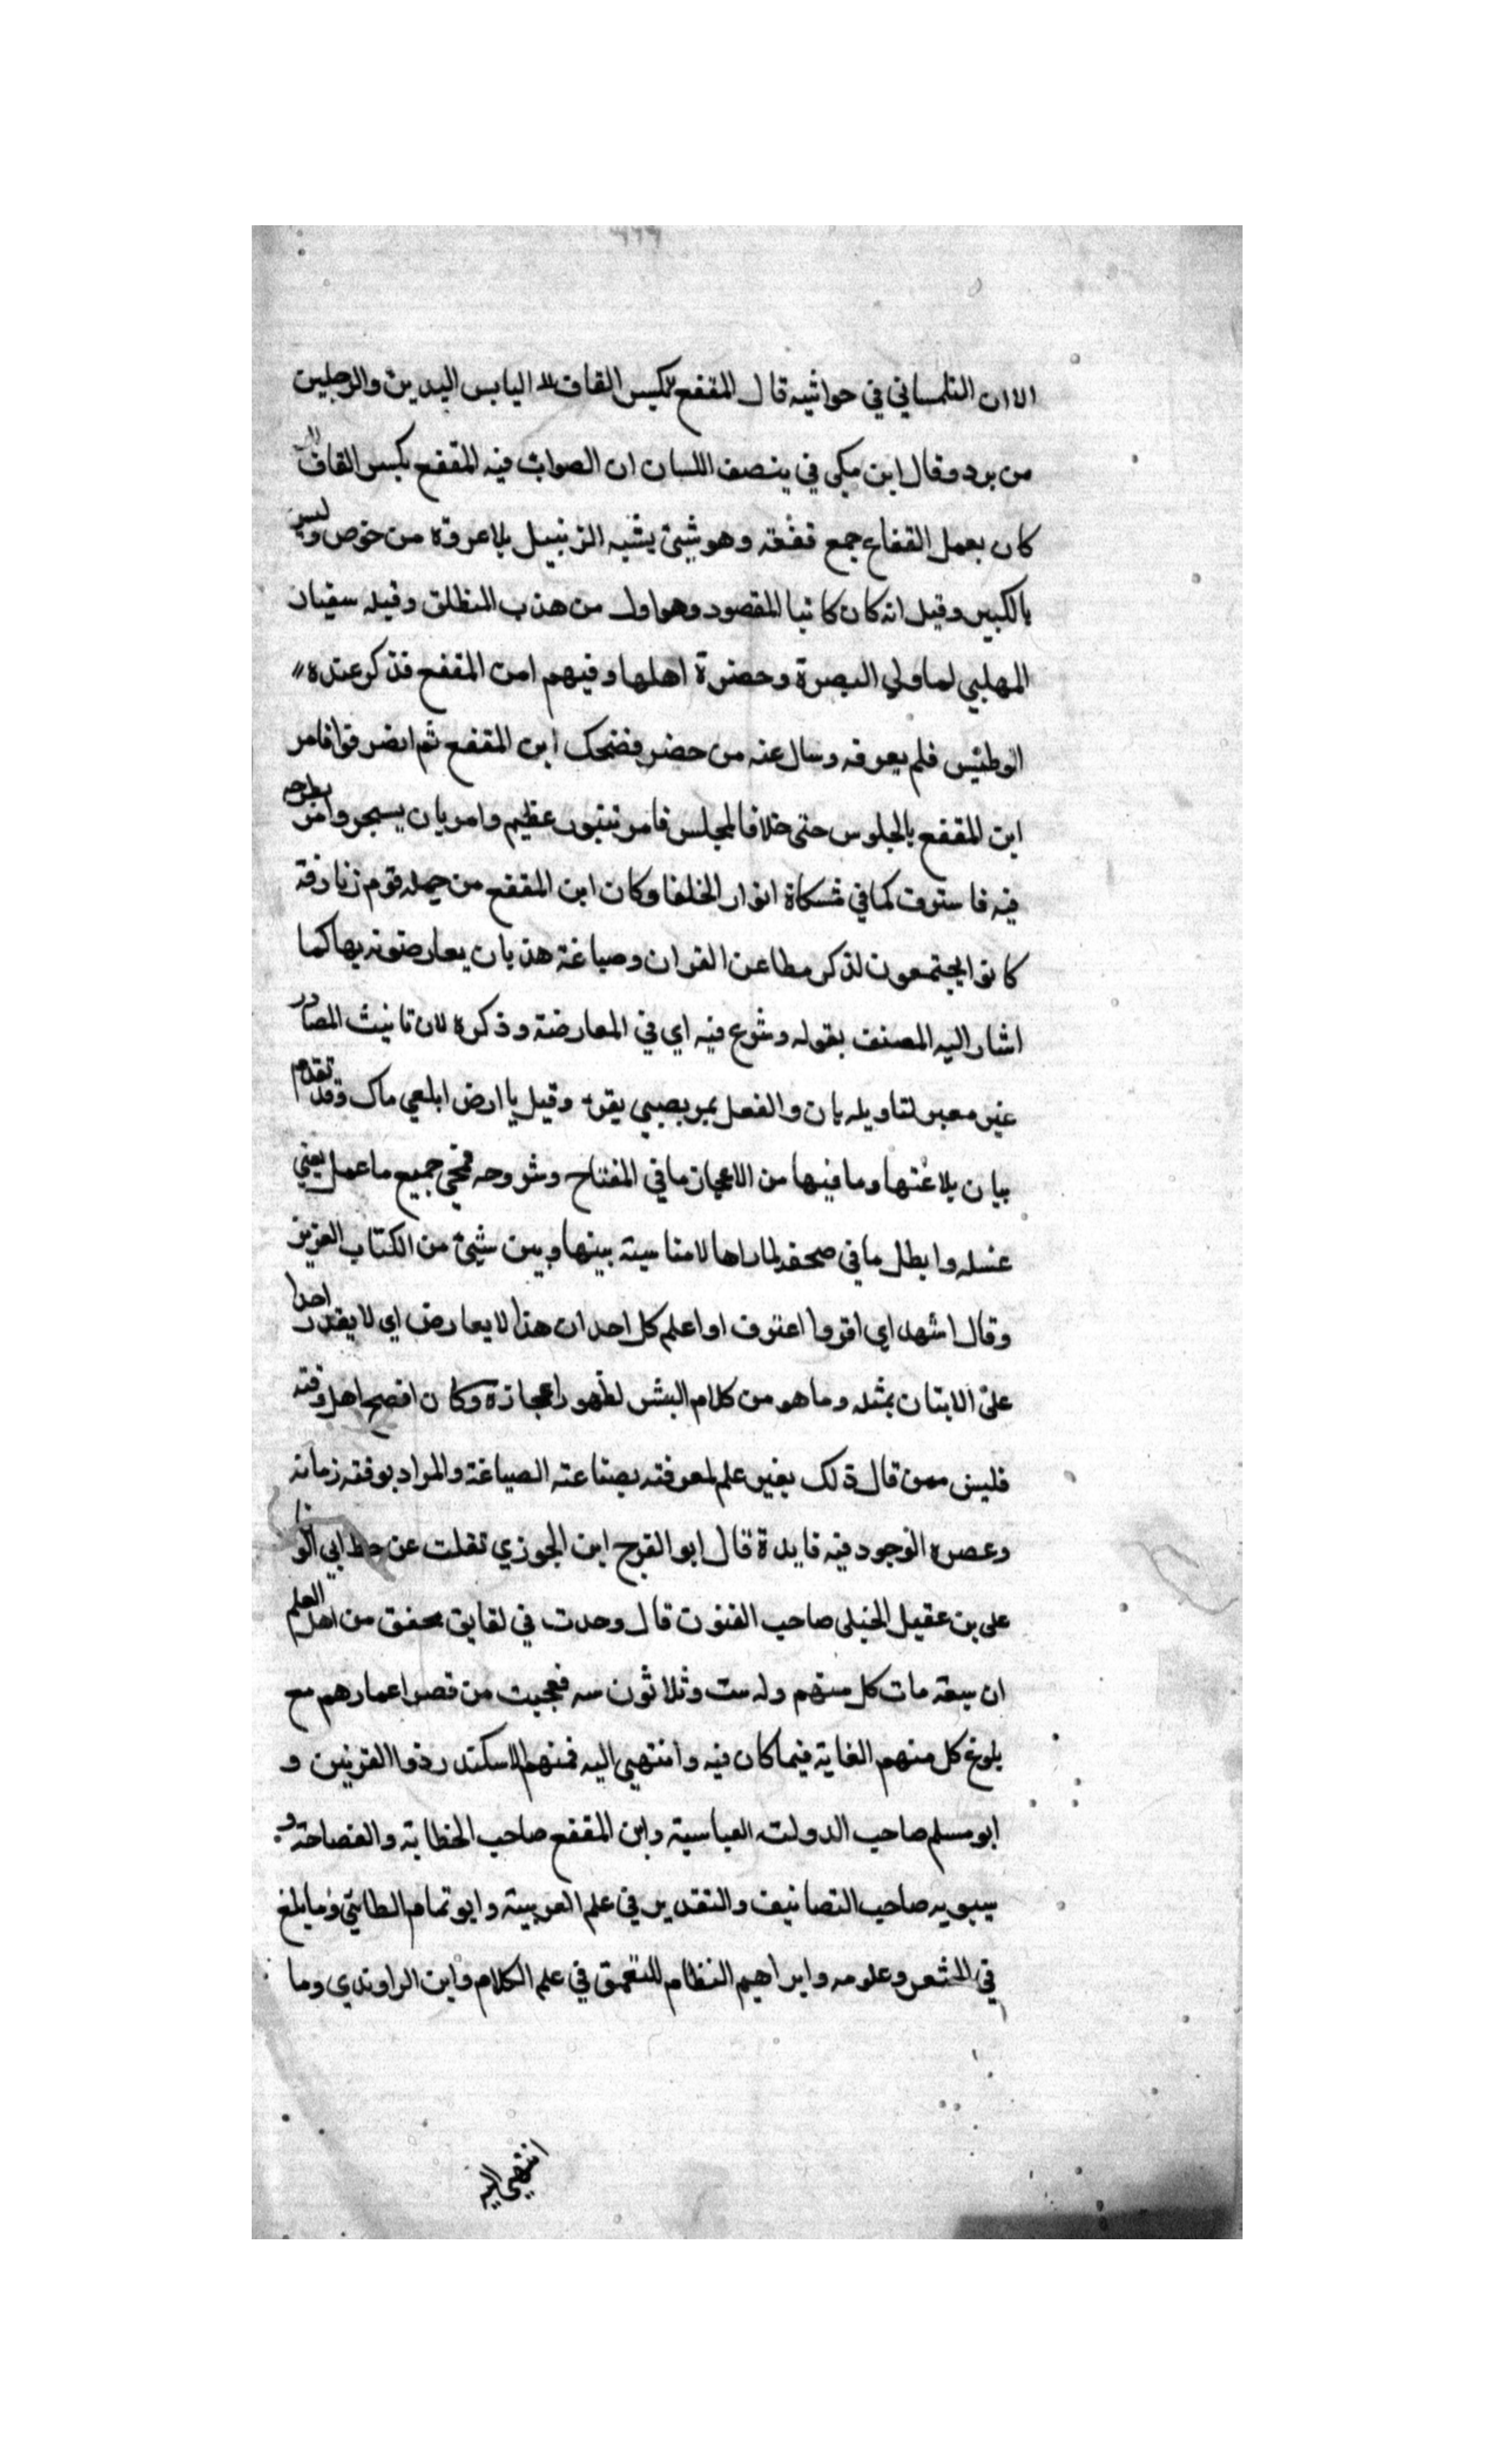 الا ان التلمساني في حواشيه قال المقفع بكسر القاف اليابس اليدين والرجلين
من برد وقال ابن مكي في ينصف اللسان ان الصواب فيه المقفع بكسر القاف
كان يعمل القفاع جمع قفعة وهو شيئ يشبه الزنبيل بلا عروة من خوص وليس
بالكبير وقيل انه كان كاتبا المقصود وهو اول من هذب المنطق وقيله سفيان
المهلبي لما ولي البصرة وحضرة اهلها وفيهم امن المقفع فذكر عنده
الوطيس فلم يعرفه وسال عنه من حضر فضحك ابن المقفع ثم انصرفوا فامر
ابن المقفع بالجلوس حتى خلا فالمجلس فامر بتنور عظيم وامر بان يسجر وامر بطرحه
فيه فاسترق كما في مشكاة انوار الخلفا وكان ابن المقفع من جمله قوم زنادقة
كانوا يجتمعون لذكر مطاعن القران وصياغة هذيان يعارضونه بها كما
اشار اليه المصنف بقوله وشرع فيه اي في المعارضة وذكره لان تانيث المصادر
غير معبر لتاويله بان والفعل بمر بصبي يقرء وقيل يا ارض ابلعي ماك وقد تقدم
بيان بلاغتها وما فيها من الاعجاز ما في المفتاح وشروحه فمحي جميع ما عمل يعني
غسله وابطل ما في صحفه لما راها لا مناسبة بينها وبين شيئ من الكتاب العزيز
وقال اشهد اي اقروا اعترف او اعلم كل احد ان هذا لا يعارض اي لا يقدر احدا
على الاتيان بمثله وما هو من كلام البشر لظهور اعجازه وكان افصح اهل وقته
فليس ممن قال ذلك بغير علم لمعرفته بصناعته الصياغة والمراد بوقته زمانه
وعصره الوجود فيه فايدة قال ابو الفرج ابن الجوزي نقلت عن خط ابي الوفا
علي بن عقيل الحنبلي صاحب الفنون قال وحدت في لقايق محقق من اهل العلم
ان سبعة مات كل منهم وله ست وثلاثون سه فعجبت من قصر اعمارهم مع
بلوغ كل منهم الغاية فيما كان فيه وانتهي اليه فمنهم الاسكندر ذو القرنين و
ابو مسلم صاحب الدولة العباسية وابن المقفع صاحب الخطابة والفصاحة و
سيبويه صاحب التصانيف والتقدير في علم العربية وابو تمام الطائي وما بلغ
في الشعر وعلومه وابراهيم النظام للتعمق في علم الكلام وابن الراوندي وما
انتهي اليه